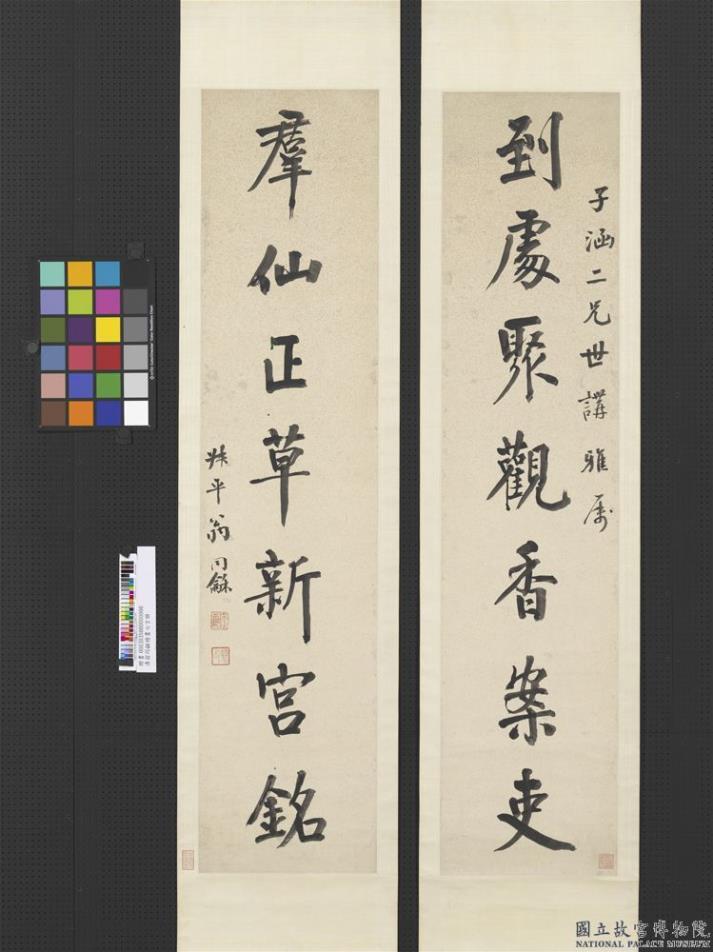 到處聚觀香案吏
子涵二兄世講雅属
羣仙正草新宮銘
叔平翁同龢
國立故宮博物院
NATIONAL PALACE MUSEUM